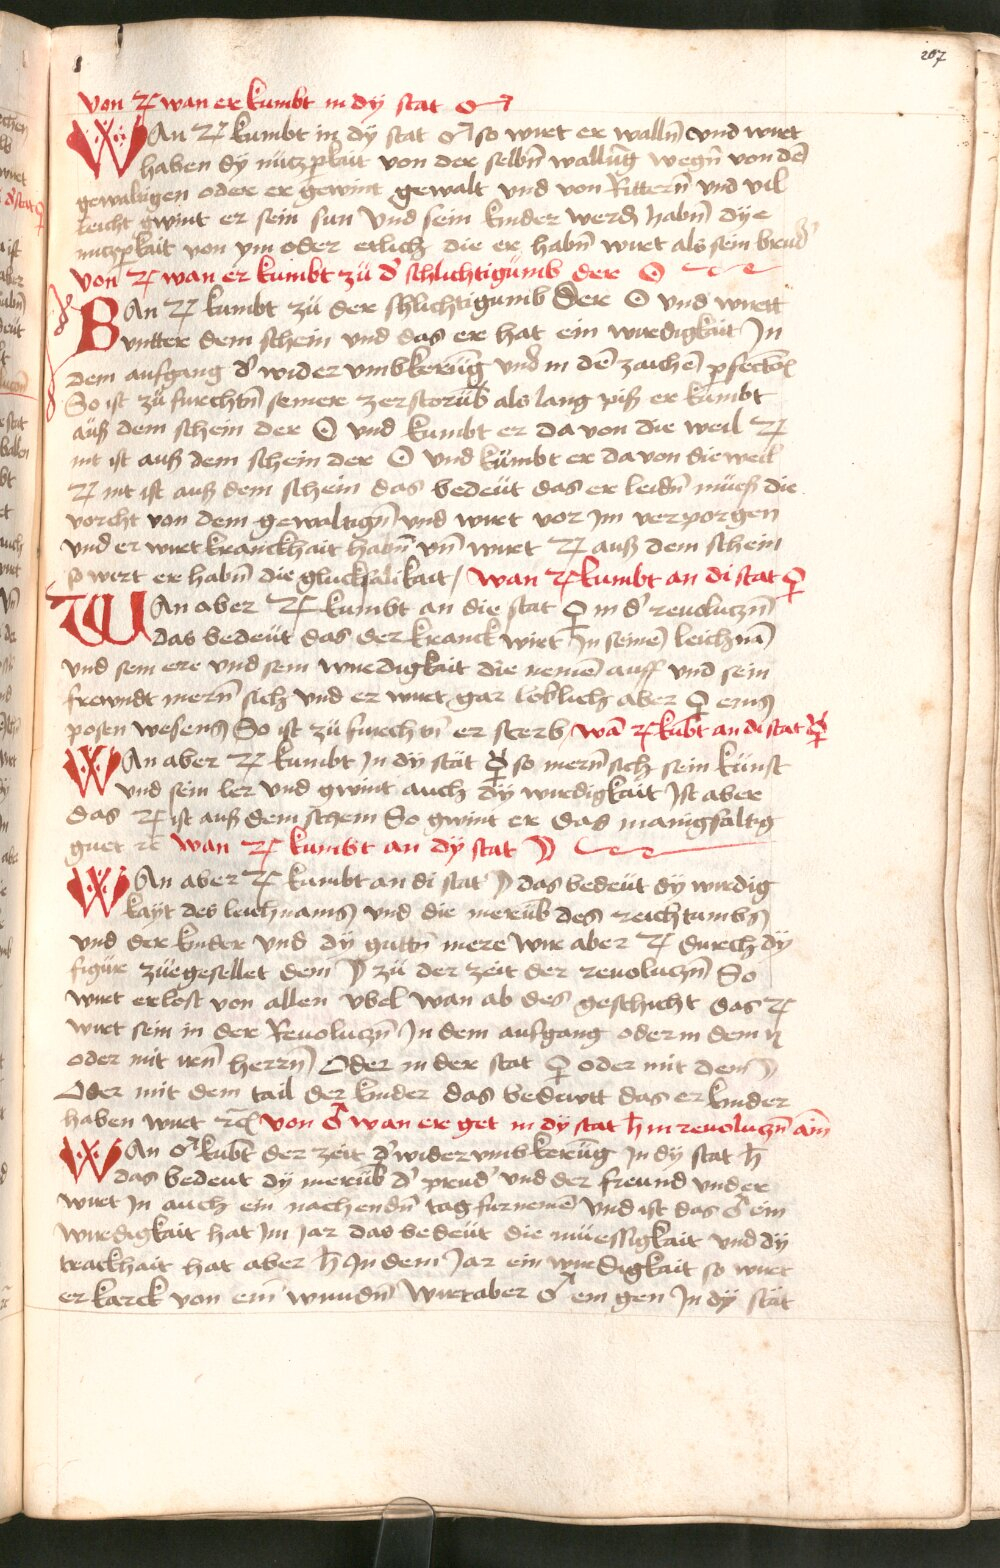 207
von ♃ wan er kumbt in dy stat ♂
WAn ♃ kumbt in dy stat ♂ so wirt er walln̄ vnd wirt
haben dy nücz p̄kait von der selbn̄ wallūg wegn̄ von dē
gewaltigen oder er gewint gewalt vnd von Rittern̄ vnd vil
leicht gwint er sein sun vnd sein kinder werdn̄ habn̄ dye
nuczp̄kait von ym oder etlich die er habn̄ wirt als sein brud̄
von ♃ wan er kumbt zü d̄ schluchtigumb der ☉
BAn ♃ kumbt zü der shluchtigumb Der ☉ vnd wirtt
vntter dem schein vnd das er hat ein wirdigkait In
dem aufgang d̄ wider vmbkerūg vnd̄ in dē zaichē
So ist zü furchtn̄ seiner zerstorūb als lang piß er kumbt
auß dem schein der ☉ vnd kumbt er da von die weil ♃
nit ist auß dem schein der ☉ vnd kümbt er da von die weil
♃ nit ist auß dem schein das bedeüt das er leidn̄ müeß die
vorcht von dem gewaltign̄ vnd wirt vor Im verporgen
vnd er wirt kranckhait habn̄ vn̄ wirt ♃ auß dem schein
so wirt er habn̄ die gluckhsalikait / wan ♃ kumbt an di stat ♀
WAn aber ♃ kumbt an die stat ♀ in d̄ reuoluczn̄
das bedeüt das der kranck wirt In seinē leichnā
vnd sein ere vnd sein wirdigkait die nemē auff vnd sein
frewndt mern̄ sich vnd er wirt gar loblich aber ♀ eins
posen wesens So ist zü furchtn̄ er sterb / wā ♃ kūbt an di stat ☿
WAn aber ♃ kumbt In dy stät ☿ so mern̄ sich sein künst
vnd sein ler vnd gwint auch dy wirdigkait Ist aber
das ♃ ist auß dem schein So gwint er das manigfaltig
guet ꝛc wan ♃ kumbt an dy stat ☽
WAn aber ♃ kumbt an di stat ☽ das bedeüt dy wirdig
kayt des leichnams vnd die merūb des reichtumbs
vnd der kinder vnd dy guttn̄ mere Wir aber ♃ durch dy
figur züegesellet dem ☽ zü der zeit der reuoluczn̄ So
wirt erlöst von allen vbel wan ab des geschicht das ♃
wirt sein in der Reuoluczn̄ In dem aufgang oder in dem ij
oder mit iren̄ herrn̄ Oder in der stat ♀ oder mit dem ☽
Oder mit dem tail der kinder das bedewtt das er kinder
haben wirt ꝛc von ♂ wan er get in dy stat ♄ in reuoluczn̄ an̄
WAn ♂ kūbt der zeit d̄ wider vmbkerūg In dy stat ♄
das bedeut dy merūb d̄ prud̄ vnd der freund vnd er
wirt In auch ein nachendn̄ tag furnemē vnd ist das ♂ ein
wirdigkait hat Im Jar das bedeüt die müessigkait vnd dy
trackhait hat aber ♄ In dem Jar ein wirdigkait so wirt
er karck von ein wundn̄ Wirt aber ♂ ein gen In dy stät